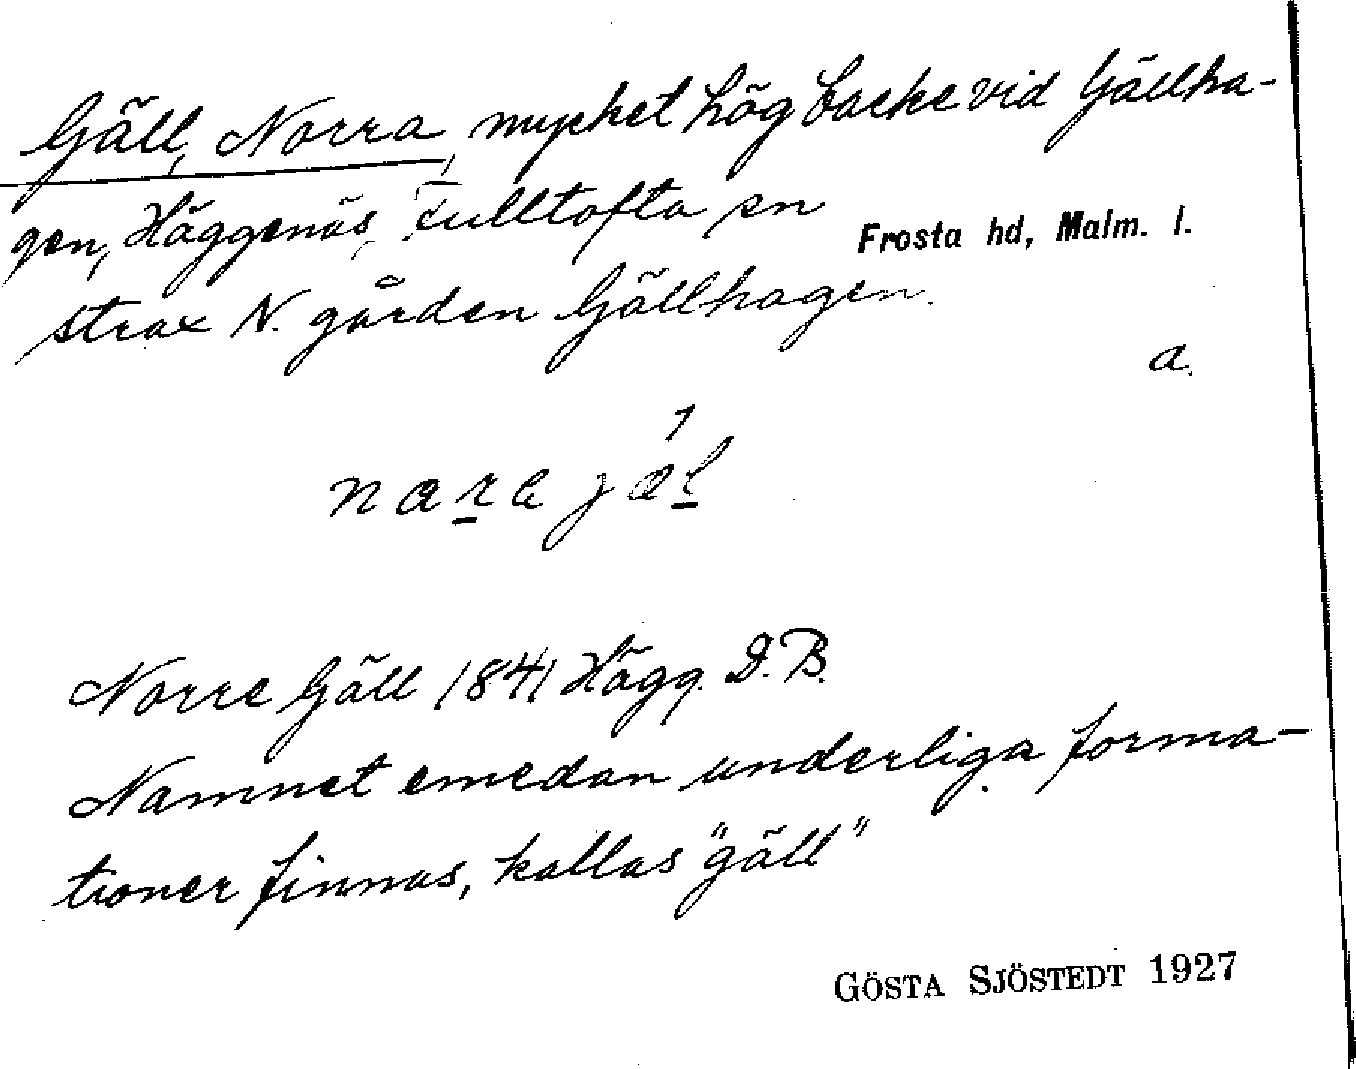 Gäll, Norra, mycket hög backe vid Gällha-
gen, Häggenäs, Fulltofta sn Frosta hd, Malm. l.
strax N. gården Gällhagen.
a.
Norre Gäll 1841 Hägg. D.B.
Namnet emedan underliga forma-
tioner finnas, kallas "gäll"
GÖSTA SJÖSTEDT 1927